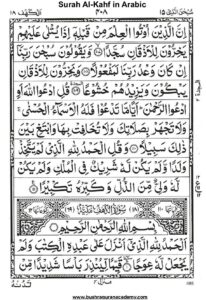 Surah Al-Kahf in Arabic
سُبْحٰنَ الَّذِيْ ١٥
٤٠٨
الكهف ١٨
اِنَّ الَّذِيْنَ اُوْتُوا الْعِلْمَ مِنْ قَبْلِهٖٓ اِذَا يُتْلٰى عَلَيْهِمْ
يَخِرُّوْنَ لِلْاَذْقَانِ سُجَّدًا ۙ وَّيَقُوْلُوْنَ سُبْحٰنَ رَبِّنَآ
اِنْ كَانَ وَعْدُ رَبِّنَا لَمَفْعُوْلًا وَيَخِرُّوْنَ لِلْاَذْقَانِ
يَبْكُوْنَ وَيَزِيْدُهُمْ خُشُوْعًا قُلِ ادْعُوا اللّٰهَ اَوِ
ادْعُوا الرَّحْمٰنَ اَيًّا مَّا تَدْعُوْا فَلَهُ الْاَسْمَآءُ الْحُسْنٰى
وَلَا تَجْهَرْ بِصَلَاتِكَ وَلَا تُخَافِتْ بِهَا وَابْتَغِ بَيْنَ
ذٰلِكَ سَبِيْلًا وَقُلِ الْحَمْدُ لِلّٰهِ الَّذِيْ لَمْ يَتَّخِذْ
وَلَدًا وَّلَمْ يَكُنْ لَّهٗ شَرِيْكٌ فِي الْمُلْكِ وَلَمْ يَكُنْ
لَّهٗ وَلِيٌّ مِّنَ الذُّلِّ وَكَبِّرْهُ تَكْبِيْرًا
بِسْمِ اللّٰهِ الرَّحْمٰنِ الرَّحِيْمِ
اَلْحَمْدُ لِلّٰهِ الَّذِيْٓ اَنْزَلَ عَلٰى عَبْدِهِ الْكِتٰبَ وَلَمْ
يَجْعَلْ لَّهٗ عِوَجًا قَيِّمًا لِّيُنْذِرَ بَاْسًا شَدِيْدًا مِّنْ
لَّدُنْهُ
www.bushraquranacademy.com